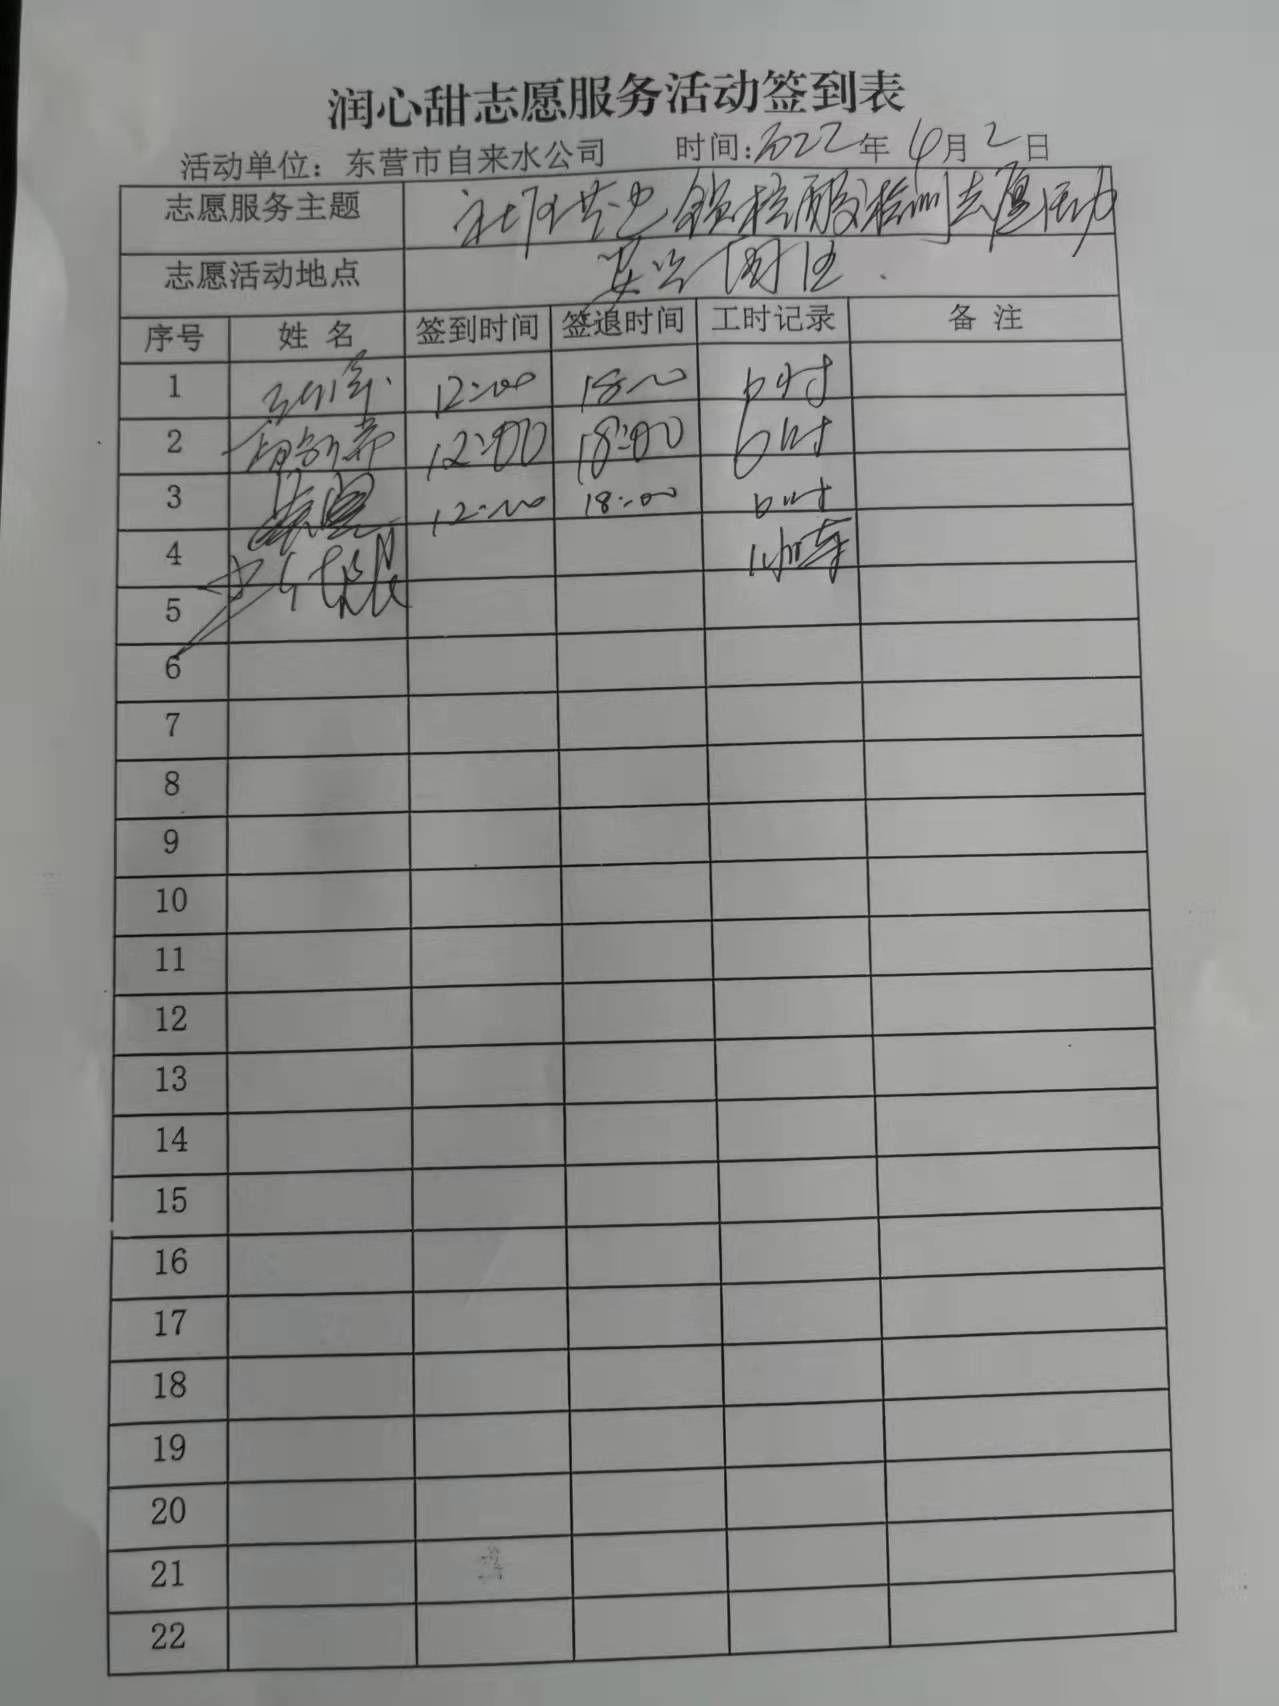 润心甜志愿服务活动签到表
活动单位：东营市自来水公司 时间：2022年4月2日
志愿服务主题 核酸检测志愿活动
志愿活动地点
序号 姓名 签到时间 签退时间 工时记录 备注
1 12:00 18:00 6时
2 12:00 18:00 6时
3 12:00 18:00 6时
4
5
6
7
8
9
10
11
12
13
14
15
16
17
18
19
20
21
22